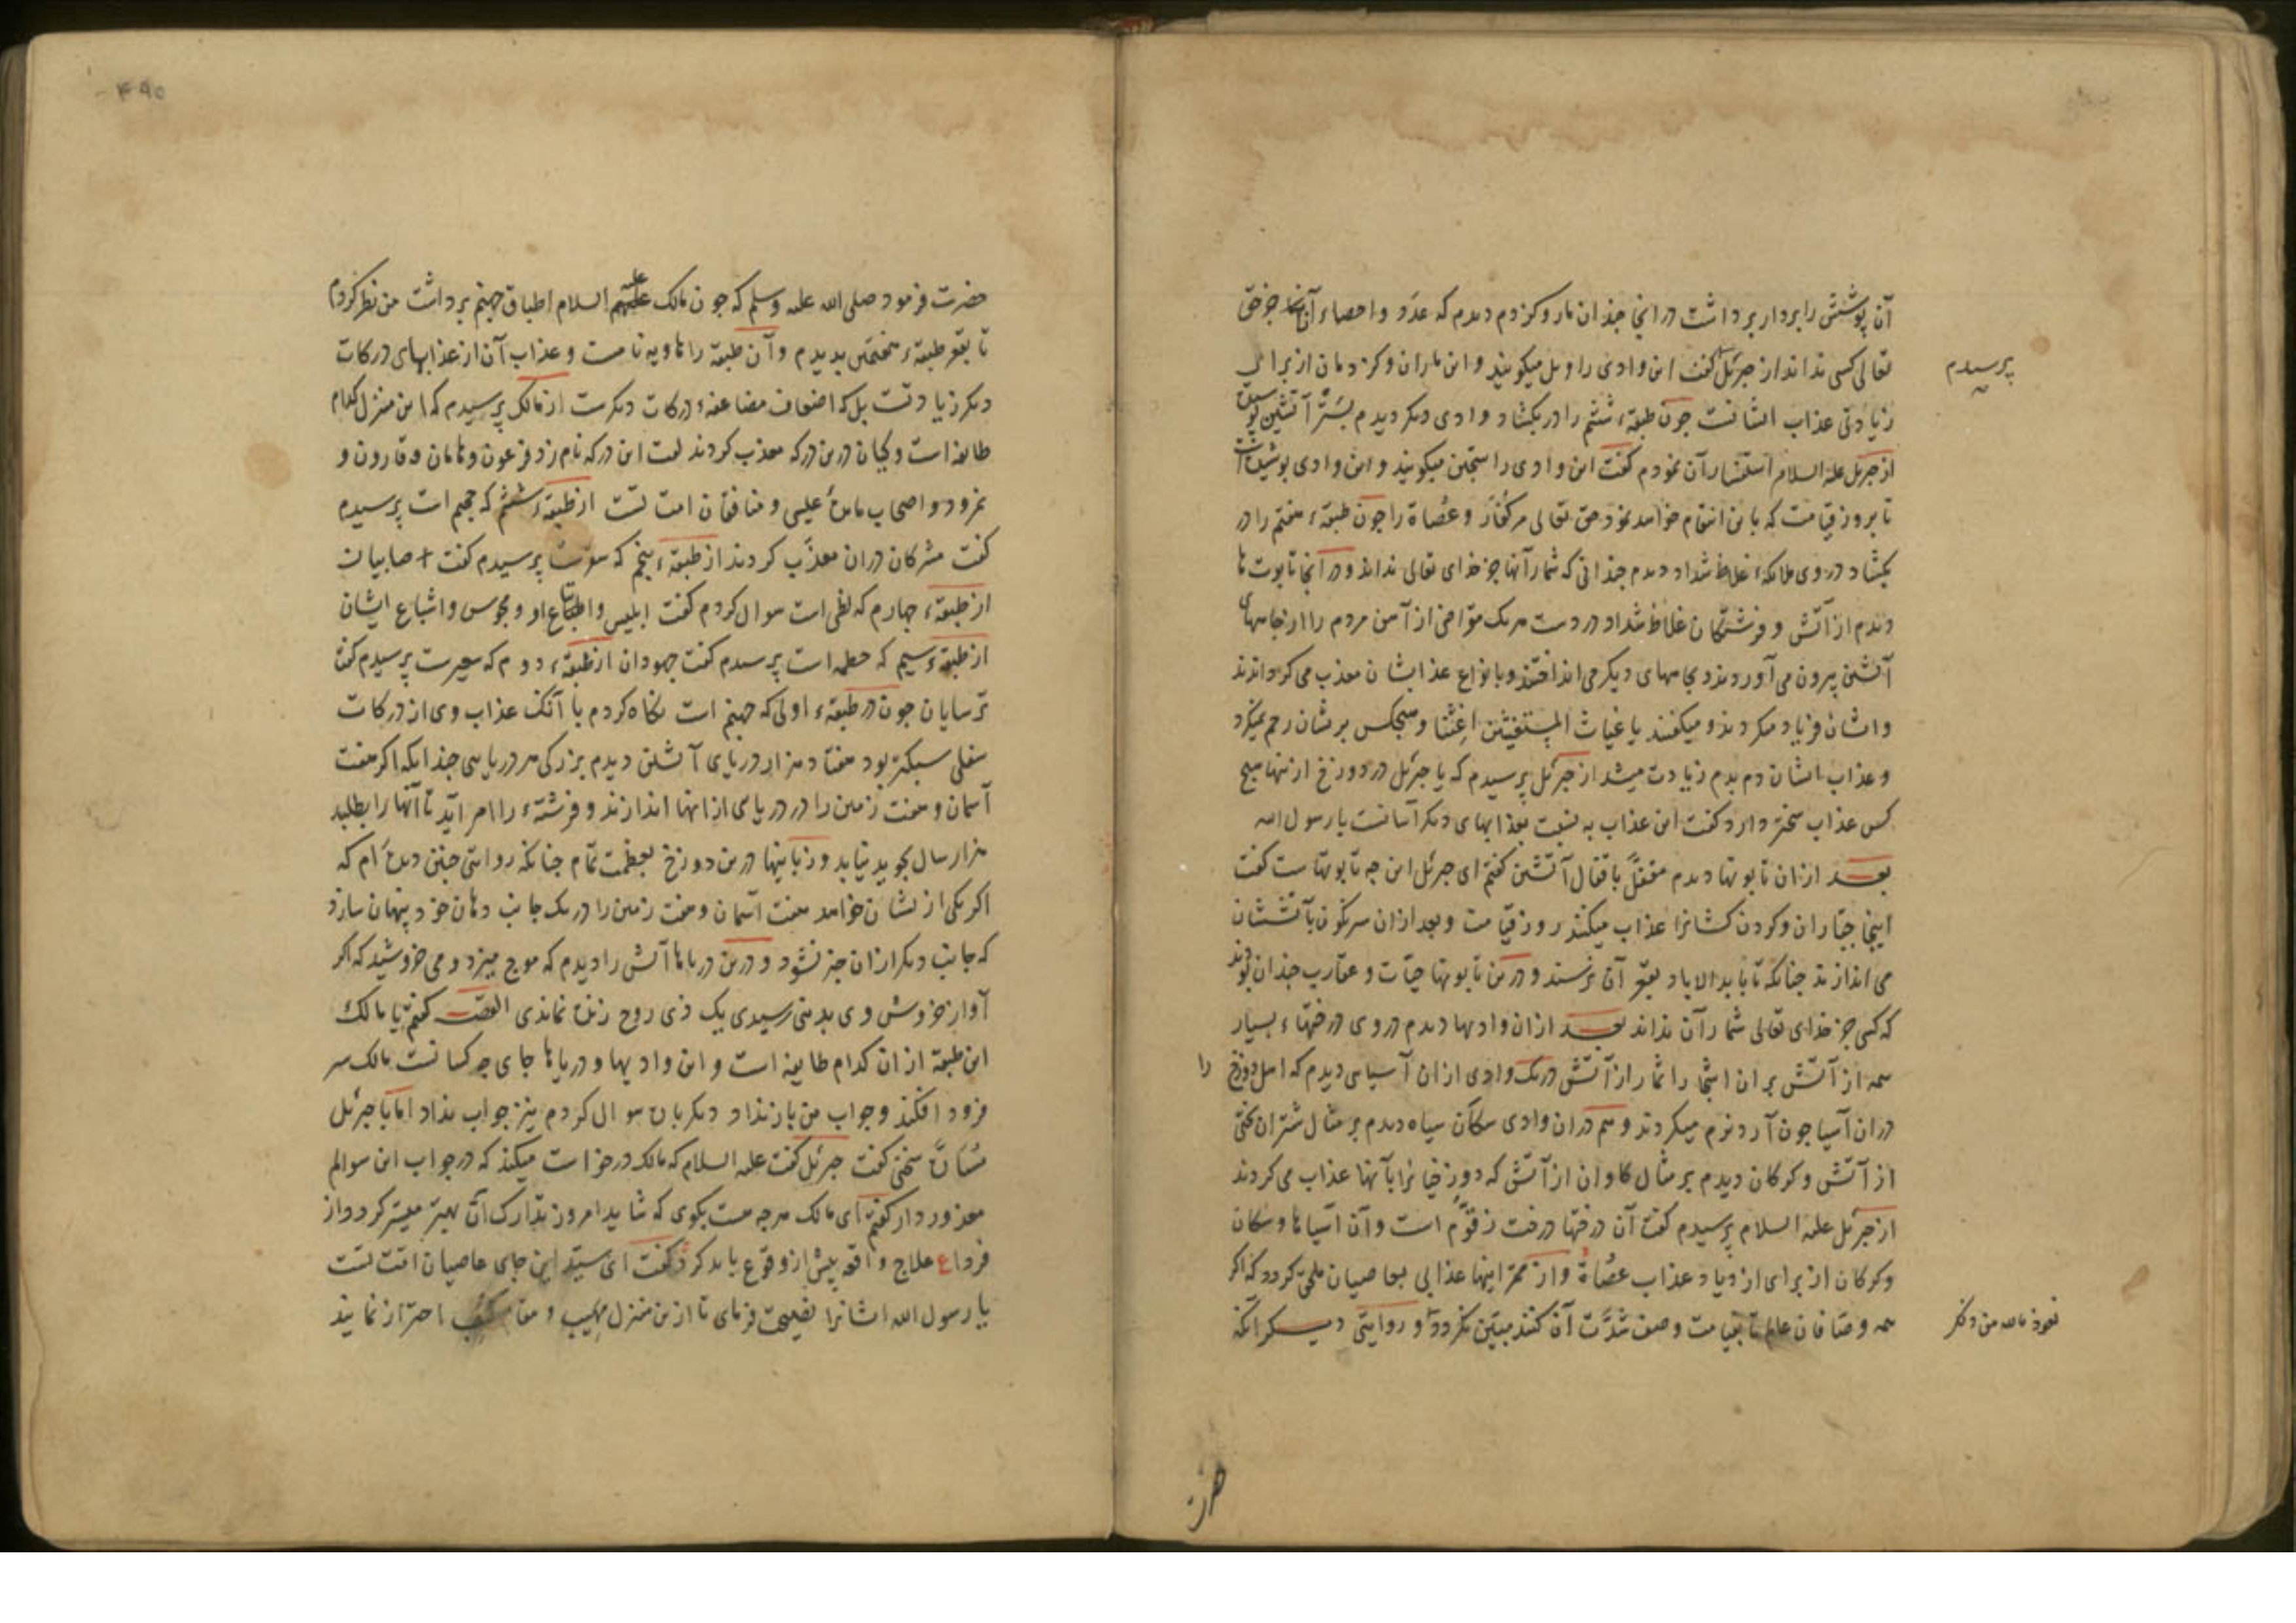 آن پوشش را بردار برداشت در انجا چندان مار و کژدم دیدم که عدد و احصاء آن جز حق
تعالی کسی نداند از جبرئل پرسیدم کفت این وادی را ویل میکویند و این ماران و کژدمان از برای
زیادتی عذاب ایشانست چون طبقهٔ ششم را در بکشاد وادی دیکر دیدم آتشین
از جبرئل علیه السلام استفسار آن نمودم کفت این وادی را سجین میکویند و این وادی پوشیده است
تا بروز قیامت که باین انتقام خواهد نمود حق تعالی مر کفار و عصاة را چون طبقهٔ هفتم را در
بکشاد در وی ملایکهٔ غلاظ شداد دیدم چندانی که شمار آنها جز خدای تعالی نداند و در آنجا تابوت ها
دیدم از آتش و فرشتکان غلاظ شداد در دست هر یک مقراضی از آهن مردم را از جامهای
آتشین بیرون می آوردند و بجامهای دیکر می انداختند و بانواع عذاب ایشان معذب می کردانیدند
و ایشان فریاد میکردند و میکفتند یا غیاث المستغیثین اغثنا و هیچکس بریشان رحم نمیکرد
و عذاب ایشان دم بدم زیادت میشد از جبرئل پرسیدم که یا جبرئل در دوزخ از اینها هیچ
کس عذاب سختر دارد کفت این عذاب به نسبت بعذابهای دیکر آسانست یا رسول الله
بعد ازان تابوتها دیدم مقفل باقفال آتشین کفتم ای جبرئل این چه تابوتهاست کفت
اینجا جباران و کردن کشانرا عذاب میکنند روز قیامت و بعد ازان سرنکون بآتششان
می اندازند چنانکه تا بابد الاباد بقعر آن نرسند و درین تابوتها حیات و عقارب چندان بودند
که کسی جز خدای تعالی شمار آن نداند بعد ازان وادیها دیدم در وی درختهاء بسیار
همه از آتش بران اشجار اثمار از آتش در یک وادی ازان آسیابی دیدم که اهل دوزخ را
دران آسیا چون آرد نرم میکردند و هم دران وادی سکان سیاه دیدم بر مثال شتران بختی
از آتش و کرکان دیدم بر مثال کاوان از آتش که دوزخیانرا بآنها عذاب می کردند
از جبرئل علیه السلام پرسیدم کفت آن درختها درخت زقوم است و آن آسیاها و سکان
و کرکان از برای ازدیاد عذاب عصاة و از ممر اینها عذابی بعاصیان ملحق کردد که اکر
همه وصافان عالم تا بقیامت وصف شدت آن کنند مبین نکردد و روایتی دیکر آنکه
نعوذ بالله من ذلک
حضرت
۴۹۵
حضرت فرمود صلی الله علیه وسلم که چون مالک علیه السلام اطباق جهنم برداشت من نظر کردم
تا بقعر طبقهٔ هفتمین بدیدم و آن طبقه را هاویه نامست و عذاب آن از عذابهای درکات
دیکر زیادتست بل که اضعاف مضاعفهٔ درکات دیکرست از مالک پرسیدم که این منزل کدام
طایفه است و کیان درین درکه معذب کردند کفت این درکه نامزد فرعون و هامان و قارون و
نمرود و اصحاب مایدهٔ عیسی و منافقان امت تست از طبقهٔ ششم که جحیم است پرسیدم
کفت مشرکان دران معذب کردند از طبقهٔ پنجم که سقرست پرسیدم کفت صابیان
از طبقهٔ چهارم که لظی است سوال کردم کفت ابلیس و اتباع او و مجوس و اشباع ایشان
از طبقهٔ سیم که حطمه است پرسیدم کفت جهودان از طبقهٔ دوم که سعیرست پرسیدم کفت
ترسایان چون در طبقهٔ اولی که جهنم است نکاه کردم با آنک عذاب وی از درکات
سفلی سبکتر بود هفتاد هزار دریای آتشین دیدم بزرکی هر دریایی چندانکه اکر هفت
آسمان و هفت زمین را در دریای از اینها اندازند و فرشتهٔ را امر آید تا آنها را بطلبد
هزار سال بجوید نیابد و زبانیها درین دوزخ بعظمت تمام چنانکه روایتی چنین دیده ام که
اکر یکی از یشان خواهد هفت آسمان و هفت زمین را در یک جانب دهان خود پنهان سازد
که جانب دیکر ازان خبر نشود و درین دریاها آتش را دیدم که موج میزد و می خروشید که اکر
آواز خروش وی بدینی رسیدی یک ذی روح زنده نماندی القصه کفتم یا مالک
این طبقه ازان کدام طایفه است و این وادیها و دریاها جای چه کسانست مالک سر
فرود افکند و جواب من باز نداد دیکر باره سوال کردم نیز جواب نداد اما با جبرئل
سخنی کفت جبرئل کفت علیه السلام که مالک درخواست میکند که در جواب این سوالم
معذور دار کفتم ای مالک هر چه هست بکوی که شاید امروز تدارک آن بهتر میسر کردد از
فردا ع علاج واقعه پیش از وقوع باید کرد کفت ای سید این جای عاصیان امت تست
یا رسول الله ایشانرا نصیحت فرمای تا ازین منزل مهیب و احتراز نمایند